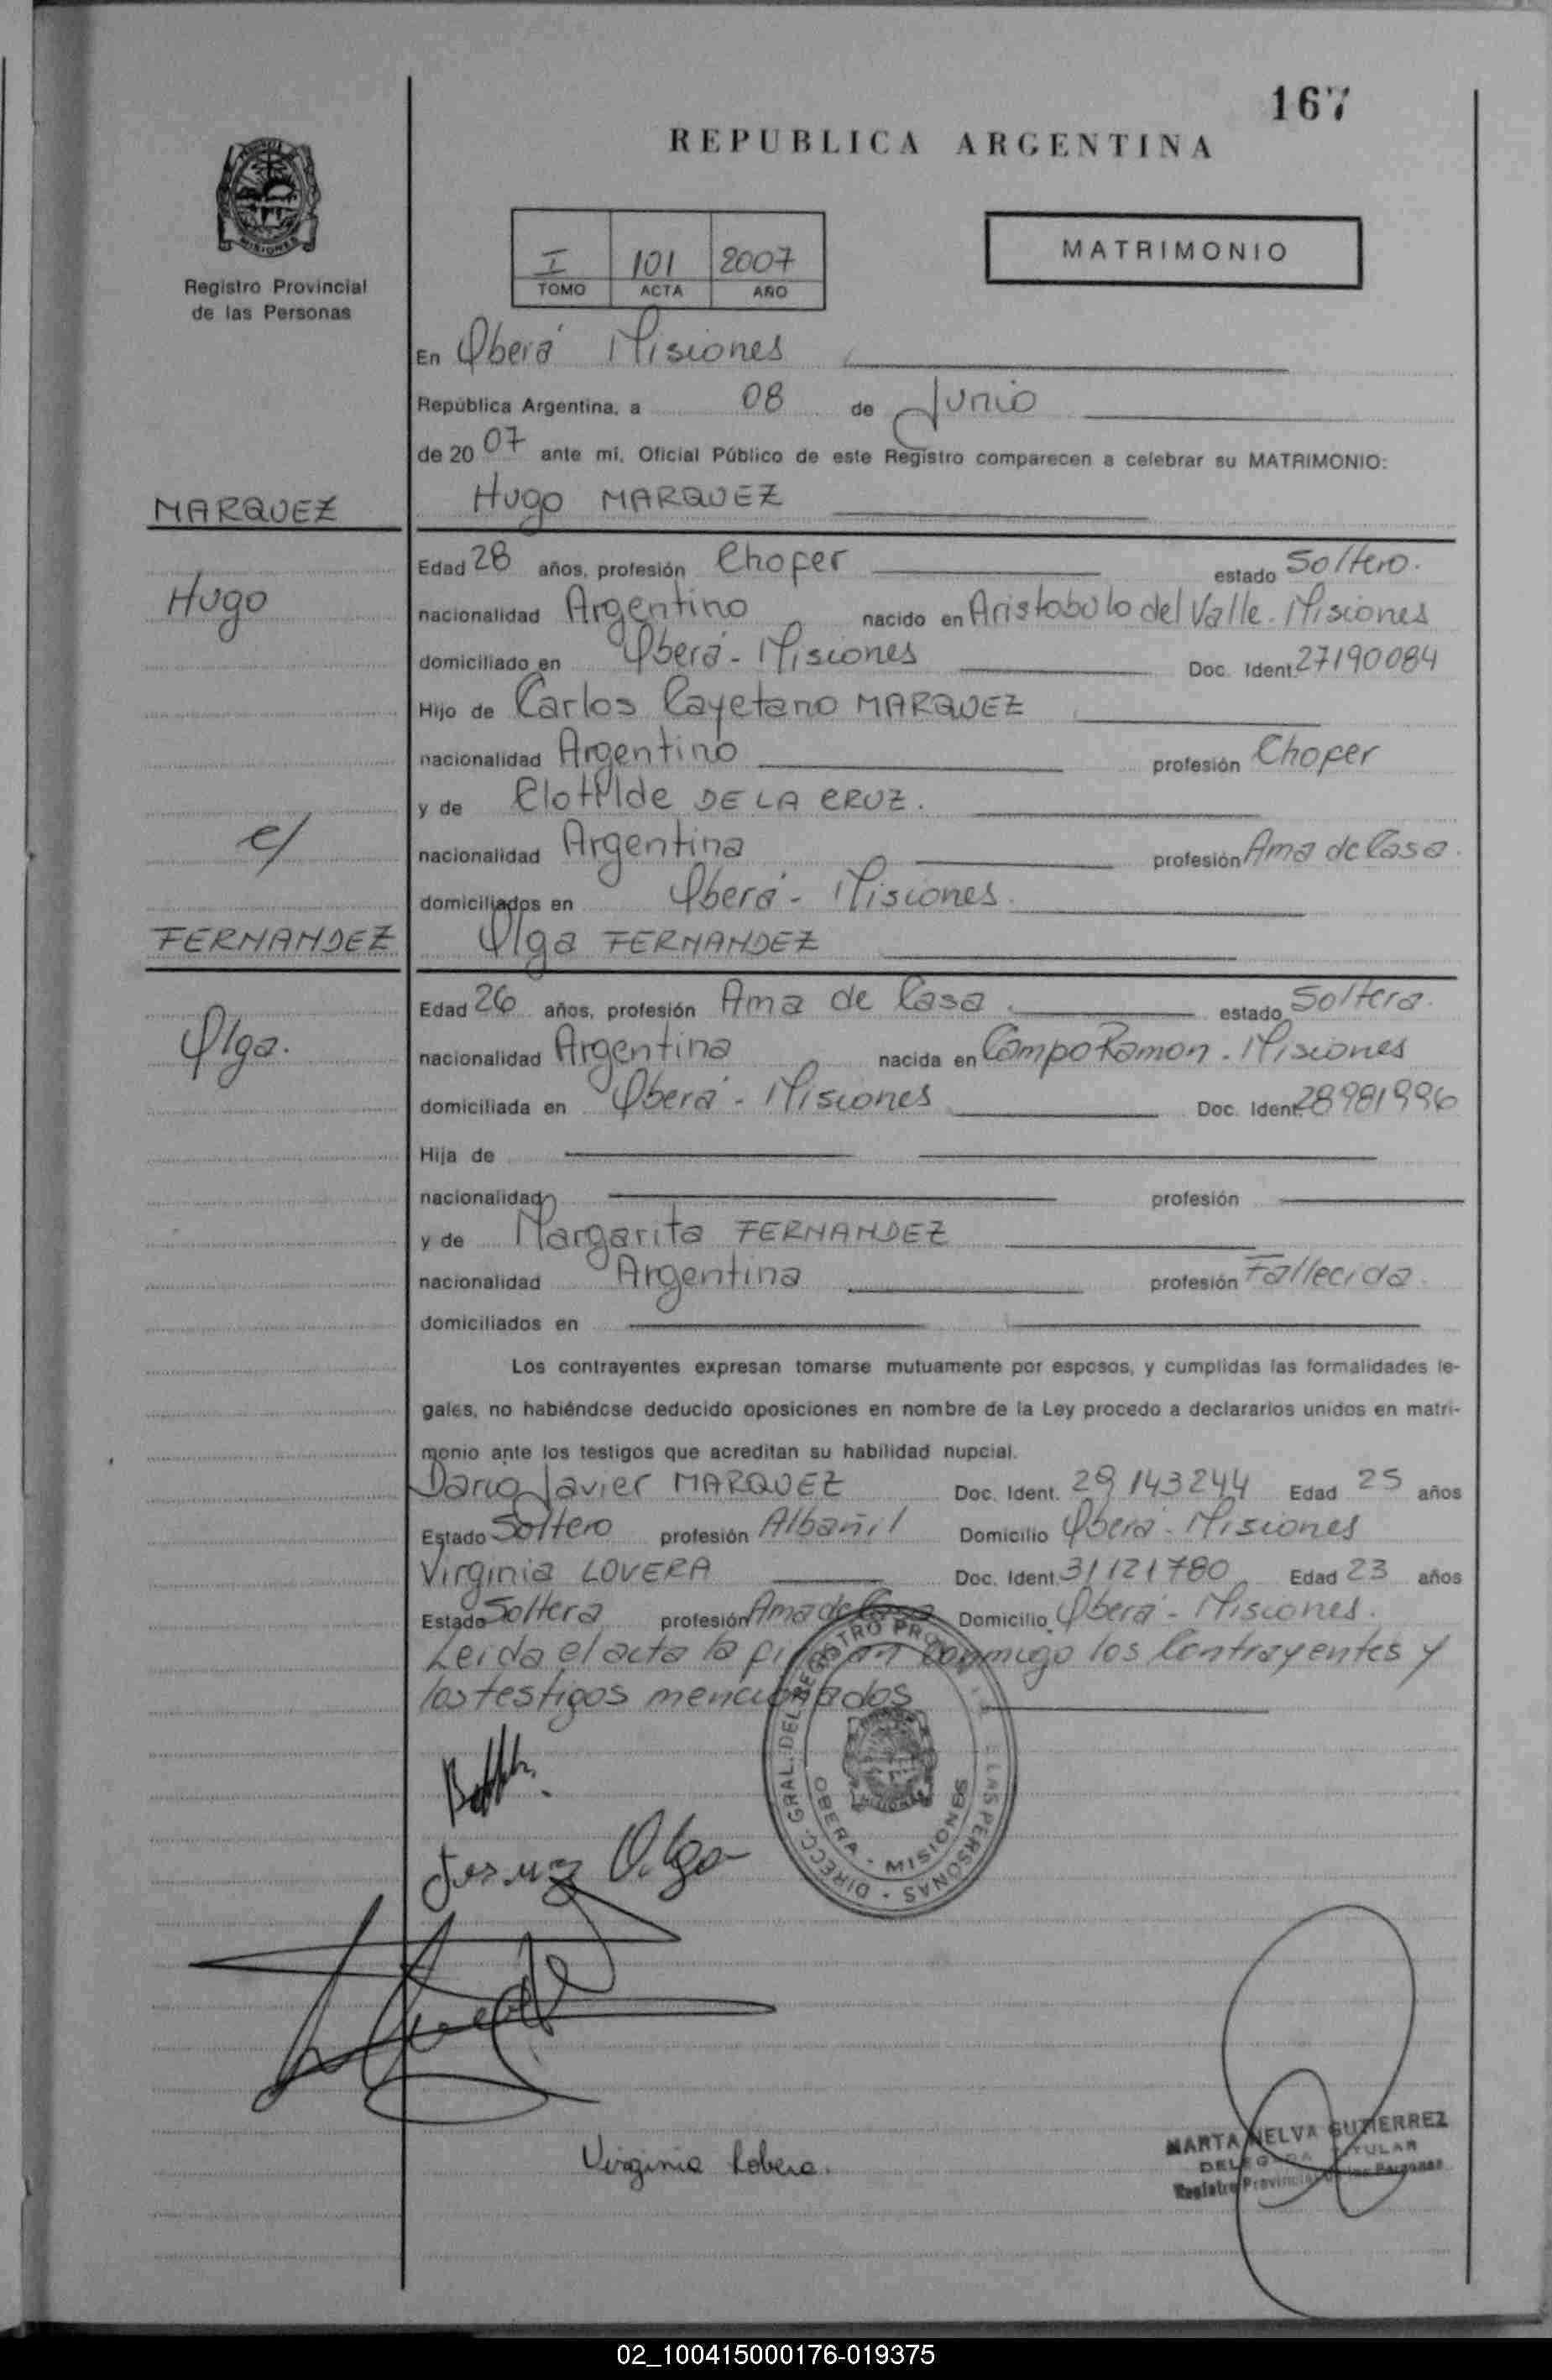 167
REPUBLICA ARGENTINA
MISIONES
Registro Provincial
de las Personas
I 101 2007
TOMO ACTA AÑO
MATRIMONIO
En Oberá Misiones
República Argentina, a 08 de Junio
de 20 07 ante mí, Oficial Público de este Registro comparecen a celebrar su MATRIMONIO:
MARQUEZ
Hugo MARQUEZ
Edad 28 años, profesión Chofer estado Soltero.
Hugo
nacionalidad Argentino nacido en Aristobulo del Valle. Misiones
domiciliado en Oberá - Misiones Doc. Ident. 27190084
Hijo de Carlos Cayetano MARQUEZ
nacionalidad Argentino profesión Chofer
y de Clotilde DE LA CRUZ.
c/
nacionalidad Argentina profesión Ama de Casa.
domiciliados en Oberá - Misiones.
FERNANDEZ
Olga FERNANDEZ
Edad 26 años, profesión Ama de Casa. estado Soltera.
Olga.
nacionalidad Argentina nacida en Campo Ramon. Misiones
domiciliada en Oberá - Misiones Doc. Ident. 28981996
Hija de
nacionalidad profesión
y de Margarita FERNANDEZ
nacionalidad Argentina profesión Fallecida.
domiciliados en
Los contrayentes expresan tomarse mutuamente por esposos, y cumplidas las formalidades le-
gales, no habiéndose deducido oposiciones en nombre de la Ley procedo a declararlos unidos en matri-
monio ante los testigos que acreditan su habilidad nupcial.
Dario Javier MARQUEZ Doc. Ident. 29143244 Edad 25 años
Estado Soltero profesión Albañil Domicilio Oberá - Misiones
Virginia LOVERA Doc. Ident. 31121780 Edad 23 años
Estado Soltera profesión Ama de Casa Domicilio Oberá - Misiones.
Leida el acta la firman conmigo los Contrayentes y
los testigos mencionados
DIRECC. GRAL. DEL REGISTRO PROV. DE LAS PERSONAS
OBERA - MISIONES
Olga
Virginia Lobera.
MARTA NELVA GUTIERREZ
DELEGADA TITULAR
Registro Provincial de las Personas
02_100415000176-019375